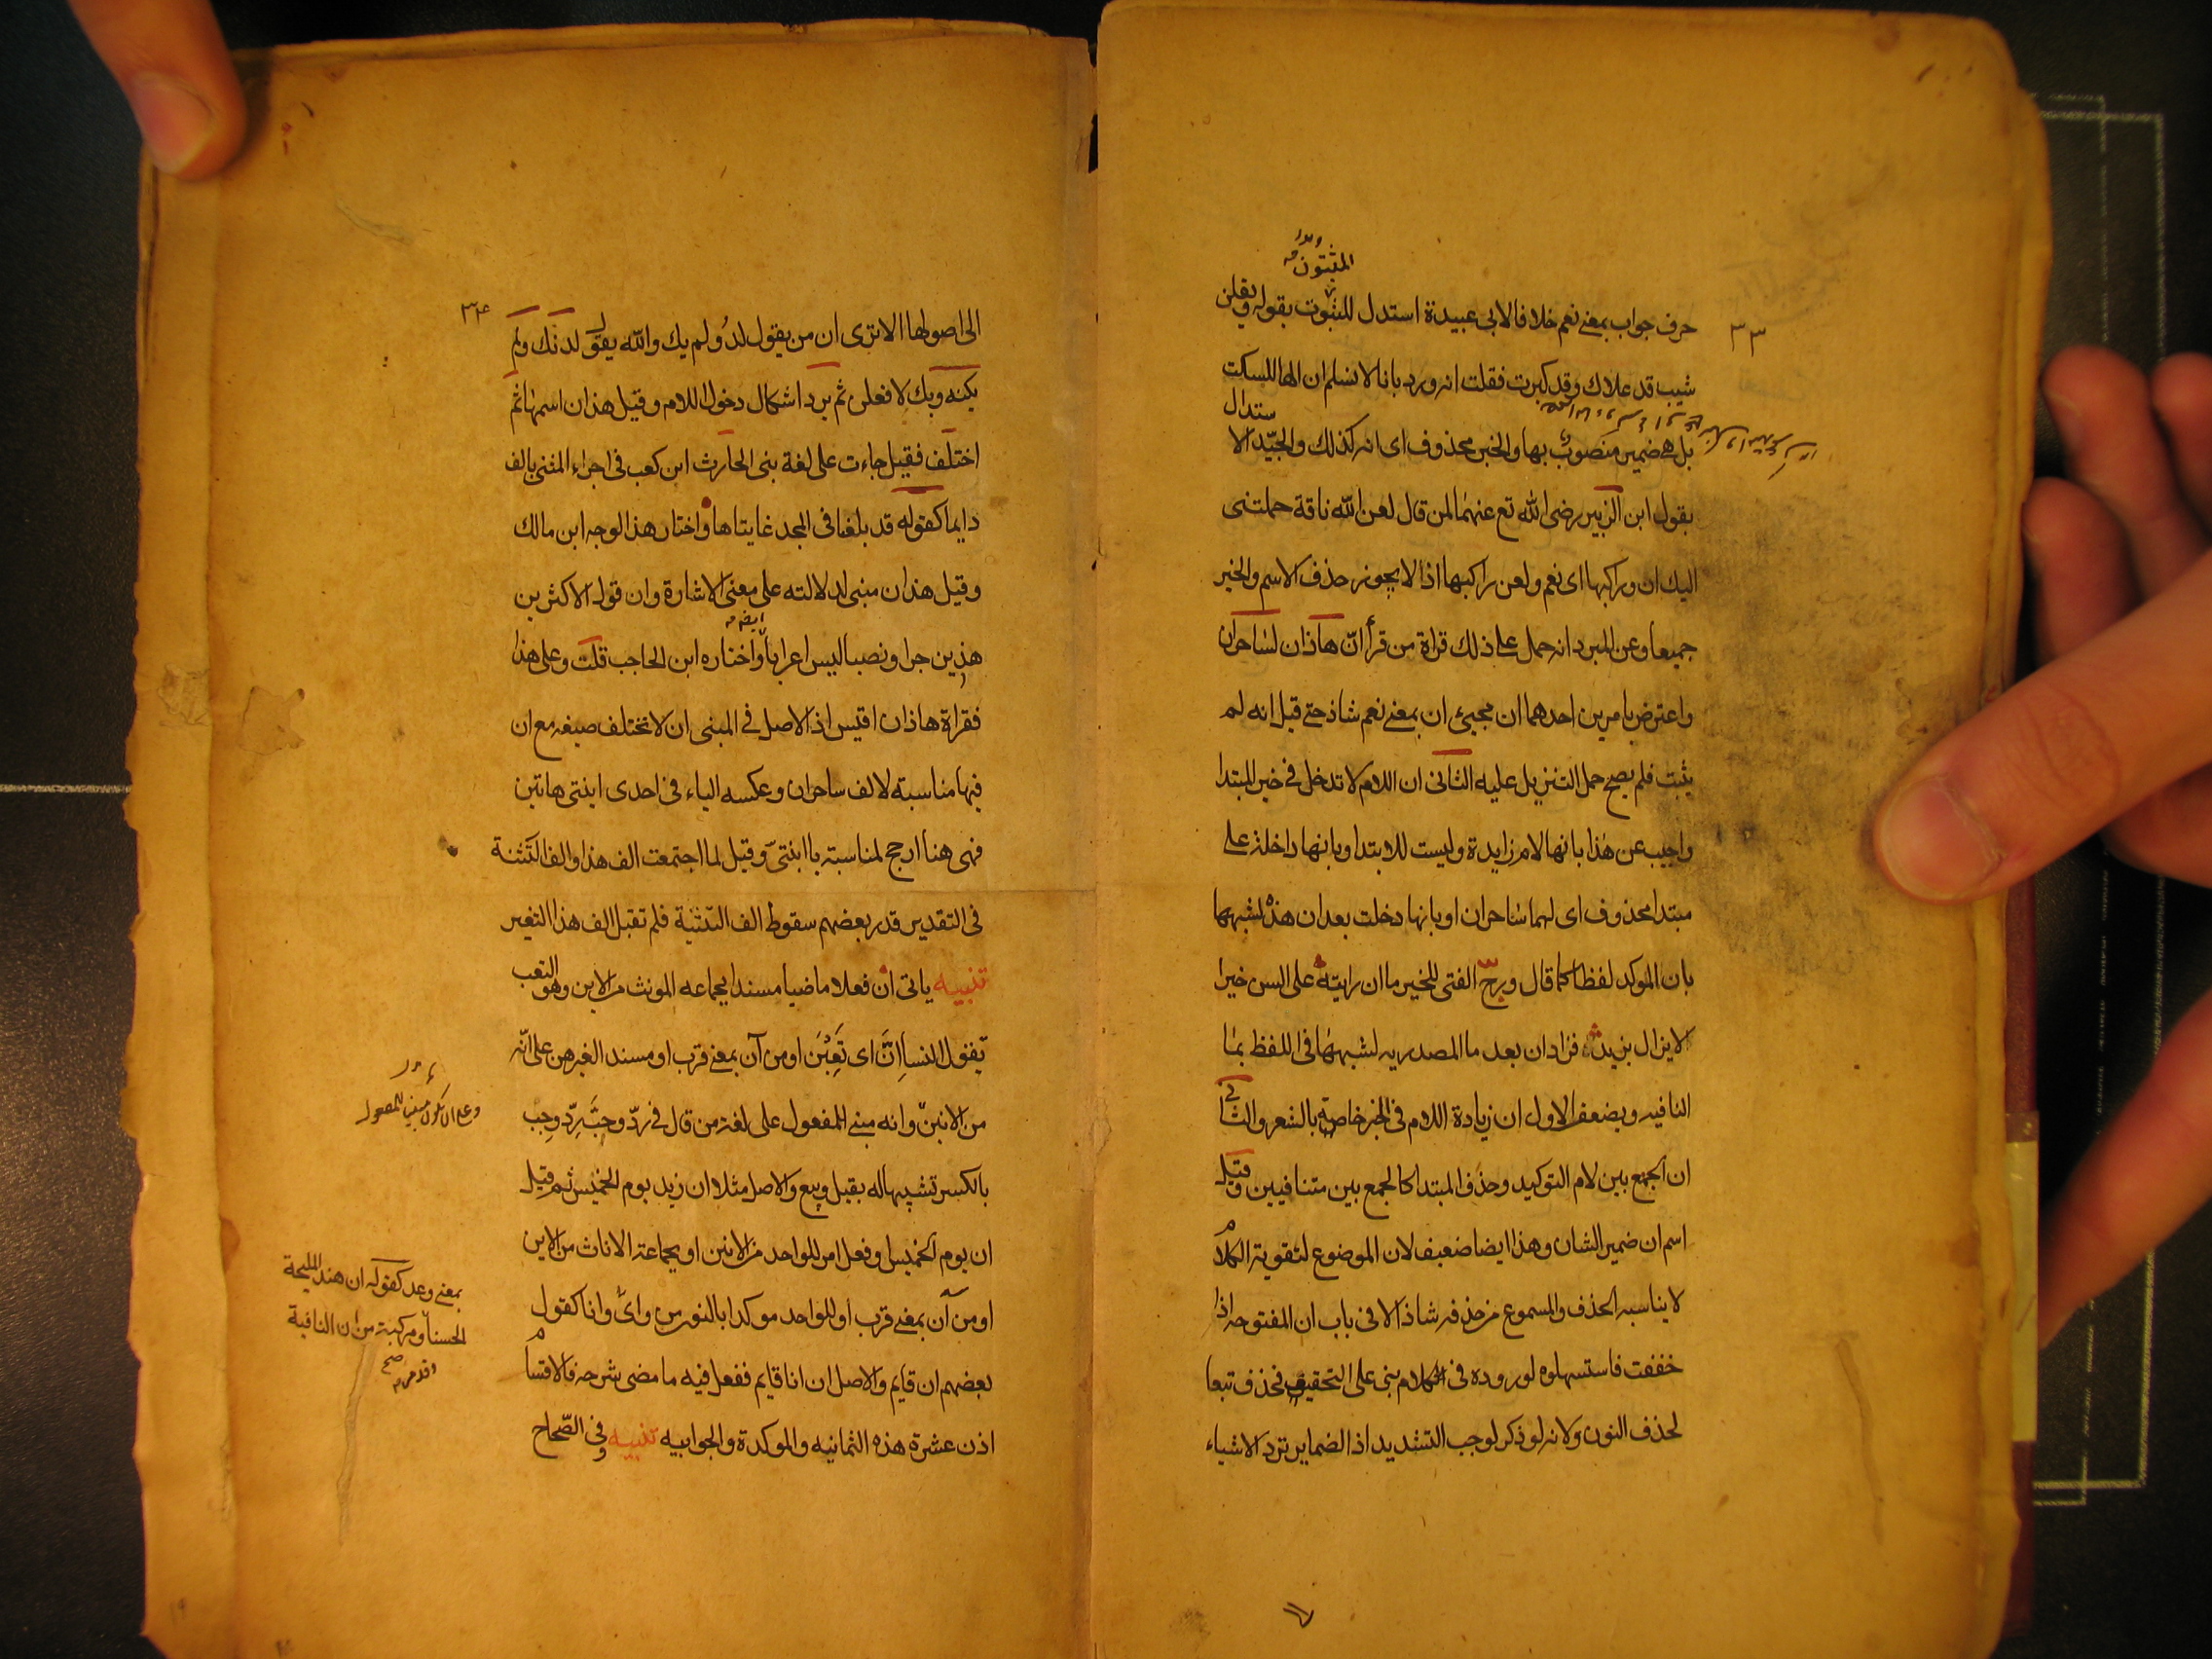 ٣٣
المثبتون
حرف جواب بمعنے نعم خلافا لابی عبیدة استدل المثبوت بقوله ویقلن
شیب قد علاك وقد كبرت فقلت انه ورد بانا لا نسلم ان الها للسكت
ستدال
بل هے ضمیر منصوب بها والخبر محذوف ای انه كذلك والجیّد الا
بقول ابن الزبیر رضی الله تع عنهما لمن قال لعن الله ناقة حملتنی
الیك ان وراكبها ای نعم ولعن راكبها اذ لا یجوز حذف الاسم والخبر
جمیعا وعن المبرد انه حمل علے ذلك قراة من قرأ انّ هاذان لساحران
واعترض بامرین احدهما ان مجیئ ان بمعنے نعم شاذ حتے قیل انه لم
یثبت فلم یصح حمل التنزیل علیه الثانی ان اللام لا تدخل فے خبر المبتدا
واجیب عن هذا بانها لام زایدة ولیست للابتدا وبانها داخلة علے
مبتدا محذوف ای لهما ساحران او بانها دخلت بعد ان هذه لشبهها
بان الموكد لفظا كما قال ورجّ الفتی للخیر ما ان رایته علی السن خیرا
لا یزال یزید فزاد ان بعد ما المصدریه لشبهها فی اللفظ بما
النافیه ویضعف الاول ان زیادة اللام فی الخبر خاصة بالشعر والثانے
ان الجمع بین لام التوكید وحذف المبتدا كالجمع بین متنافیین وقیل
اسم ان ضمیر الشان وهذا ایضا ضعیف لان الموضوع لتقویة الكلام
لا یناسبه الحذف والمسموع من حذفه شاذ الا فی باب ان المفتوحه اذا
خففت فاستسهلوه لوروده فی كلام بنی علی التحقیف فحذف تبعا
لحذف النون ولانه لو ذكر لوجب التشدید اذ الضمایر ترد الاشیاء
٣٤
الی اصولها الا تری ان من یقول لد ولم یك والله یقول لدنك ولم
یكنه وبك لافعلن ثم یرد اشكال دخول اللام وقیل هذان اسمها ثم
اختلف فقیل جاءت علی لغة بنی الحارث ابن كعب فی اجراء المثنی بالف
دایما كقوله قد بلغا فی المجد غایتاها واختار هذا الوجه ابن مالك
وقیل هذان مبنی لدلالته علی معنی الاشارة وان قول الاكثرین
هذین جرا ونصبا لیس اعرابا واختاره ابن الحاجب قلت وعلی هذا
فقراة هاذان اقیس اذ الاصل فے المبنی ان لا تختلف صیغه مع ان
فیها مناسبة لالف ساحران وعكسه الیاء فی احدی ابنتی هاتین
فهی هنا ارجح لمناسبة یا ابنتی وقیل لما اجتمعت الف هذا والف التثنة
فی التقدیر قدر بعضهم سقوط الف التثنیة فلم تقبل الف هذا التغیر
تنبیه یاتی ان فعلا ماضیا مسندا لجماعه المونث من الاین وهو التعب
تقول النسا إنَّ ای تَعِبْنَ او من آن بمعنے قرب او مسند الغیرهن علی انّه
من الانین وانه مبنے للمفعول علی لغة من قال فے ردّ وحبّ رِدّ وحِب
بالكسر تشبیها له بقیل وبیع والاصل مثلا ان زید یوم الخمیس ثم قیل
ان یوم الخمیس او فعل امر للواحد من الانین او لجماعة الاناث من الاین
او من آن بمعنے قرب او للواحد موكدا بالنون من وائ وانا كقول
بعضهم ان قایم والاصل ان انا قایم ففعل فیه ما مضی شرحه فالاقسام
اذن عشرة هذه الثمانیه والموكدة والجوابیه تنبیه وفی الصّحاح
وعلے ان یكون مبنیا للمفعول
بمعنے وعد كقوله ان هند الملیحة
الحسنا ومركبة من ان النافیة